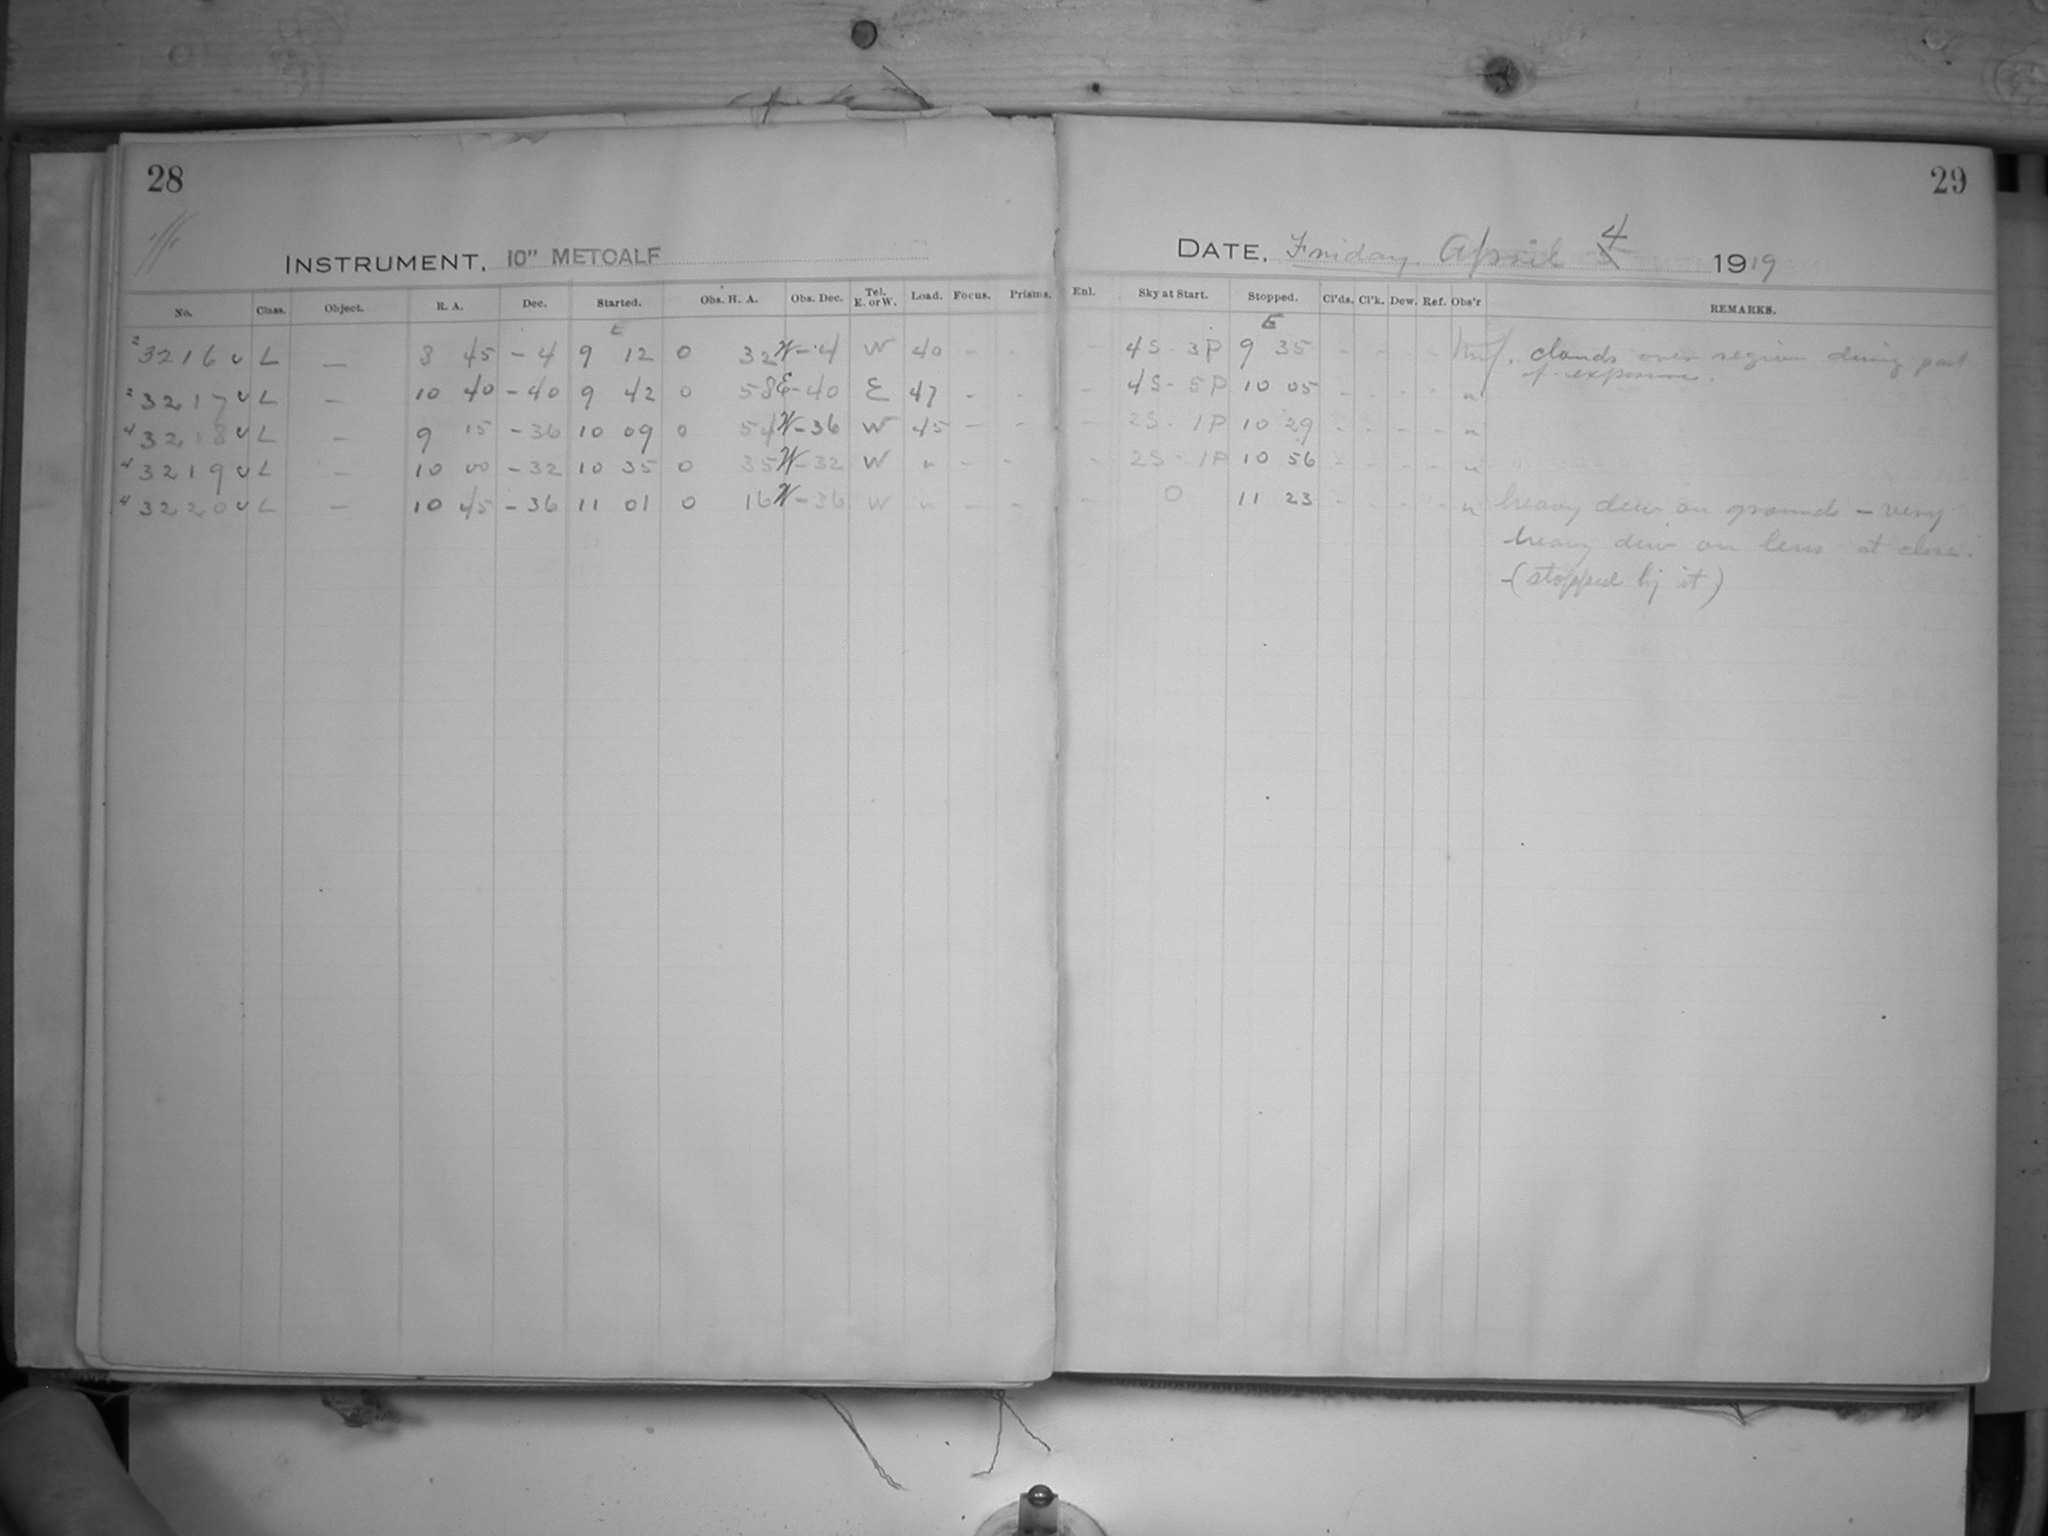 28
29
INSTRUMENT, 10" METCALF
DATE, Friday April 4 1919
No. Class. Object. R. A. Dec. Started. Obs. H. A. Obs. Dec. Tel. E. or W. Load. Focus. Prisms. Enl. Sky at Start. Stopped. Cl'ds. Cl'k. Dew. Ref. Obs'r REMARKS.
E E
2 3216 v L — 8 45 - 4 9 12 0 32 W - 4 W 40 - - - 4S - 3P 9 35 - - - - clouds over region during part
of exposure.
2 3217 v L — 10 40 - 40 9 42 0 58 E - 40 E 47 - - - 4S - 5P 10 05 - - - - "
4 3218 v L — 9 15 - 36 10 09 0 54 W - 36 W 45 - - - 2S - 1P 10 29 - - - - "
4 3219 v L — 10 00 - 32 10 35 0 35 W - 32 W " - - - 2S - 1P 10 56 - - - - "
4 3220 v L — 10 45 - 36 11 01 0 16 W - 36 W " - - - 0 11 23 - - - - " heavy dew on grounds - very
heavy dew on lens at close.
- (stopped by it)